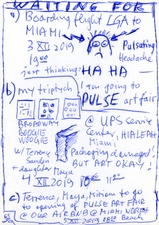 WAITING FOR
a) Boarding flight LGA to
MIAMI
3 XII 2019
19 00
Pulsating
Headache
just thinking: HA HA
b) my triptych I am going to
PULSE art fair
BROADWAY
BOOGIE
WOOGIE
@ UPS Service
Center, HIALEAH
Miami
W Terence
Sandra
+ daughter Maya
Packaging damaged,
BUT ART OKAY!
XII 2019
c) Terence, Maya, Miriam to go
to opening of PULSE ART FAIR
@ OUR AIRBNB @ MIAMI
XII 2019 BEACH